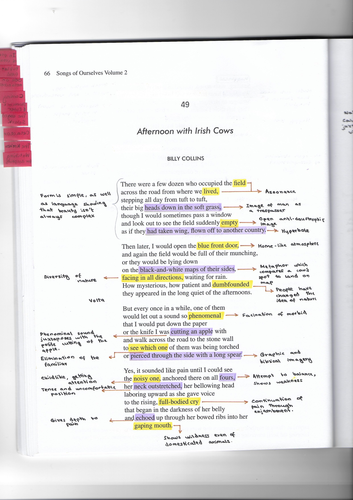 66 Songs of Ourselves Volume 2
49
Afternoon with Irish Cows
BILLY COLLINS
There were a few dozen who occupied the field
across the road from where we lived,
stepping all day from tuft to tuft,
their big heads down in the soft grass,
though I would sometimes pass a window
and look out to see the field suddenly empty
as if they had taken wing, flown off to another country.
Then later, I would open the blue front door,
and again the field would be full of their munching,
or they would be lying down
on the black-and-white maps of their sides,
facing in all directions, waiting for rain.
How mysterious, how patient and dumbfounded
they appeared in the long quiet of the afternoons.
But every once in a while, one of them
would let out a sound so phenomenal
that I would put down the paper
or the knife I was cutting an apple with
and walk across the road to the stone wall
to see which one of them was being torched
or pierced through the side with a long spear.
Yes, it sounded like pain until I could see
the noisy one, anchored there on all fours,
her neck outstretched, her bellowing head
laboring upward as she gave voice
to the rising, full-bodied cry
that began in the darkness of her belly
and echoed up through her bowed ribs into her
gaping mouth.
Form is simple, as well
as language showing
that beauty isn't
always complex
Assonance
Image of man as
a trespasser
image
Hyperbole
Home-like atmosphere
Metaphor which
compares a cows
spot to land on
map
Diversity of
nature
People have
changed the
idea of nature
Volta
Fascination of morbid
Phenomenal sound
juxtaposes with the
apple.
Elimination of the
familiar
Graphic and
biblical imagery
Childlike, getting
attention
Attempt to balance,
shows weakness
Tense and uncomfortable
position
Continuation of
pain through
enjambment.
Gives depth to
pain
Shows wildness even of
domesticated animals